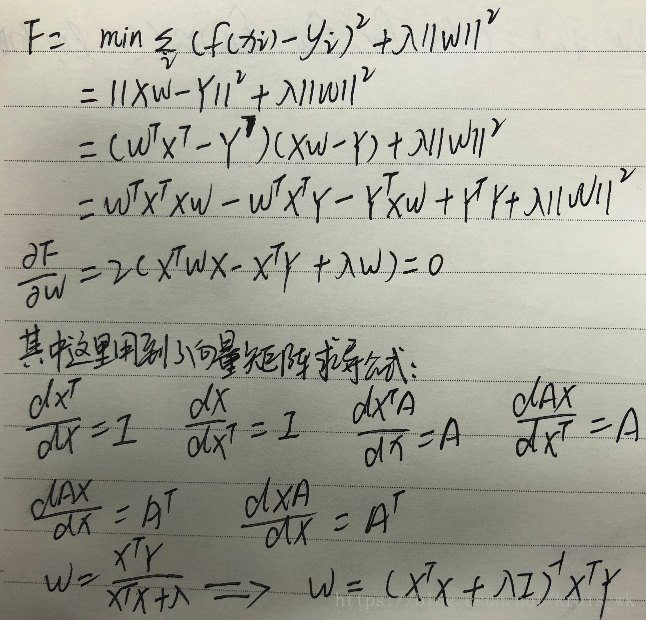 F = min Σᵢ (f(xᵢ) - yᵢ)² + λ||W||²
= ||XW - Y||² + λ||W||²
= (WᵀXᵀ - Yᵀ)(XW - Y) + λ||W||²
= WᵀXᵀXW - WᵀXᵀY - YᵀXW + YᵀY + λ||W||²
∂F/∂W = 2(XᵀWX - XᵀY + λW) = 0
其中这里用到了向量矩阵求导公式:
dXᵀ/dX = I dX/dXᵀ = I dXᵀA/dX = A dAX/dXᵀ = A
dAX/dX = Aᵀ dXA/dX = Aᵀ
W = XᵀY/(XᵀX + λ) => W = (XᵀX + λI)⁻¹XᵀY